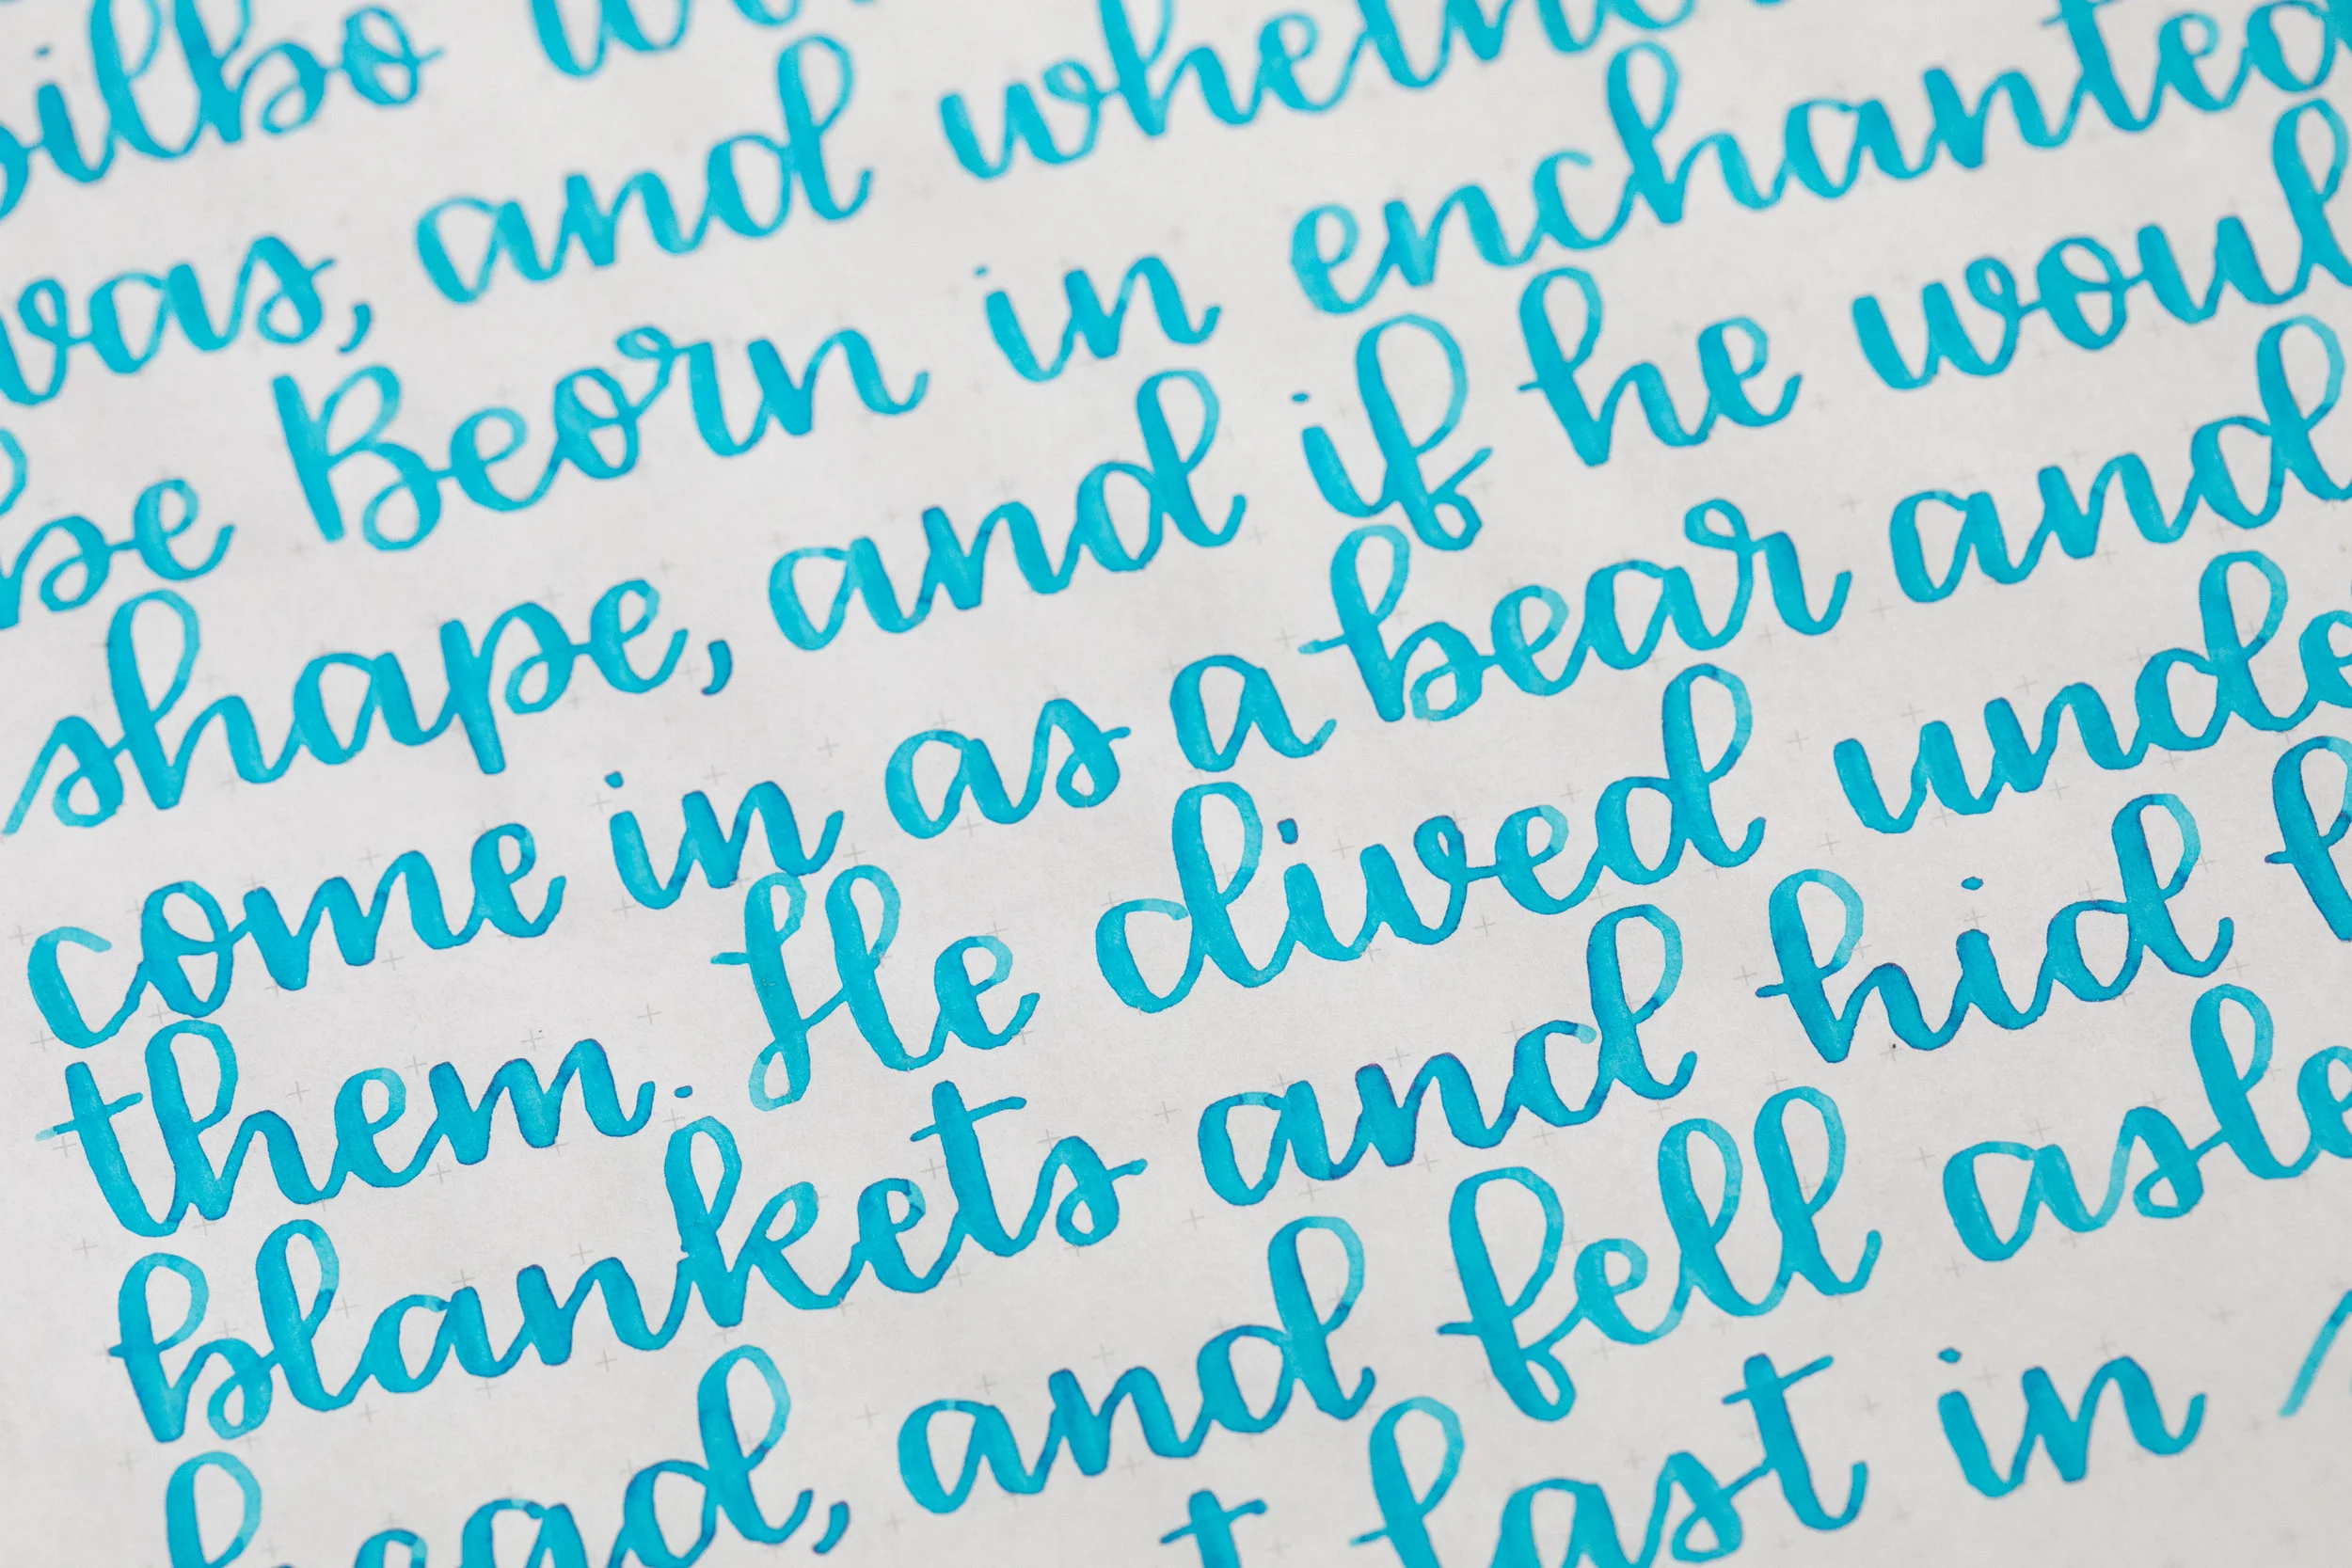 bilbo
was, and
be Beorn in enchanted
shape, and if he woul
come in as a bear and
them. He dived unde
blankets and hid h
head, and fell asle
t last in